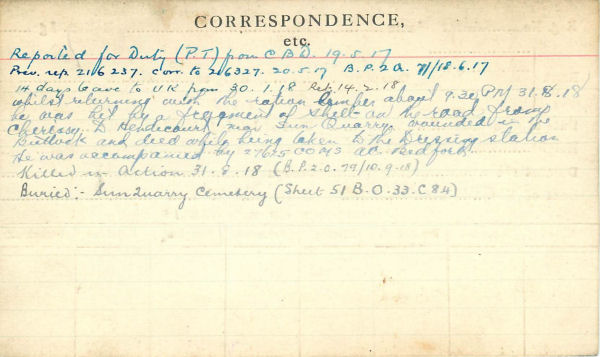 CORRESPONDENCE,
etc.
Reported for Duty (P.T) from C B D. 19.5.17
Prev. rep. 216237. Corr. to 216327. 20.5.17 B.P.2.O. 71/18.6.17
14 days leave to UK from 30.1.18 Ret. 14.2.18
whilst returning with the ration limber about 9.20 PM 31.8.18
he was hit by a fragment of shell on the road from
Cherissy to Hendecourt, near Sun Quarry, wounded in the
Buttock and died while being taken to the Dressing station
He was accompanied by 27625 CQMS Bedford.
Killed in Action 31.8.18 (B.P.2.O. 79/10.9.18)
Buried:- Sun Quarry Cemetery (Sheet 51 B.O.33.C 8.4)